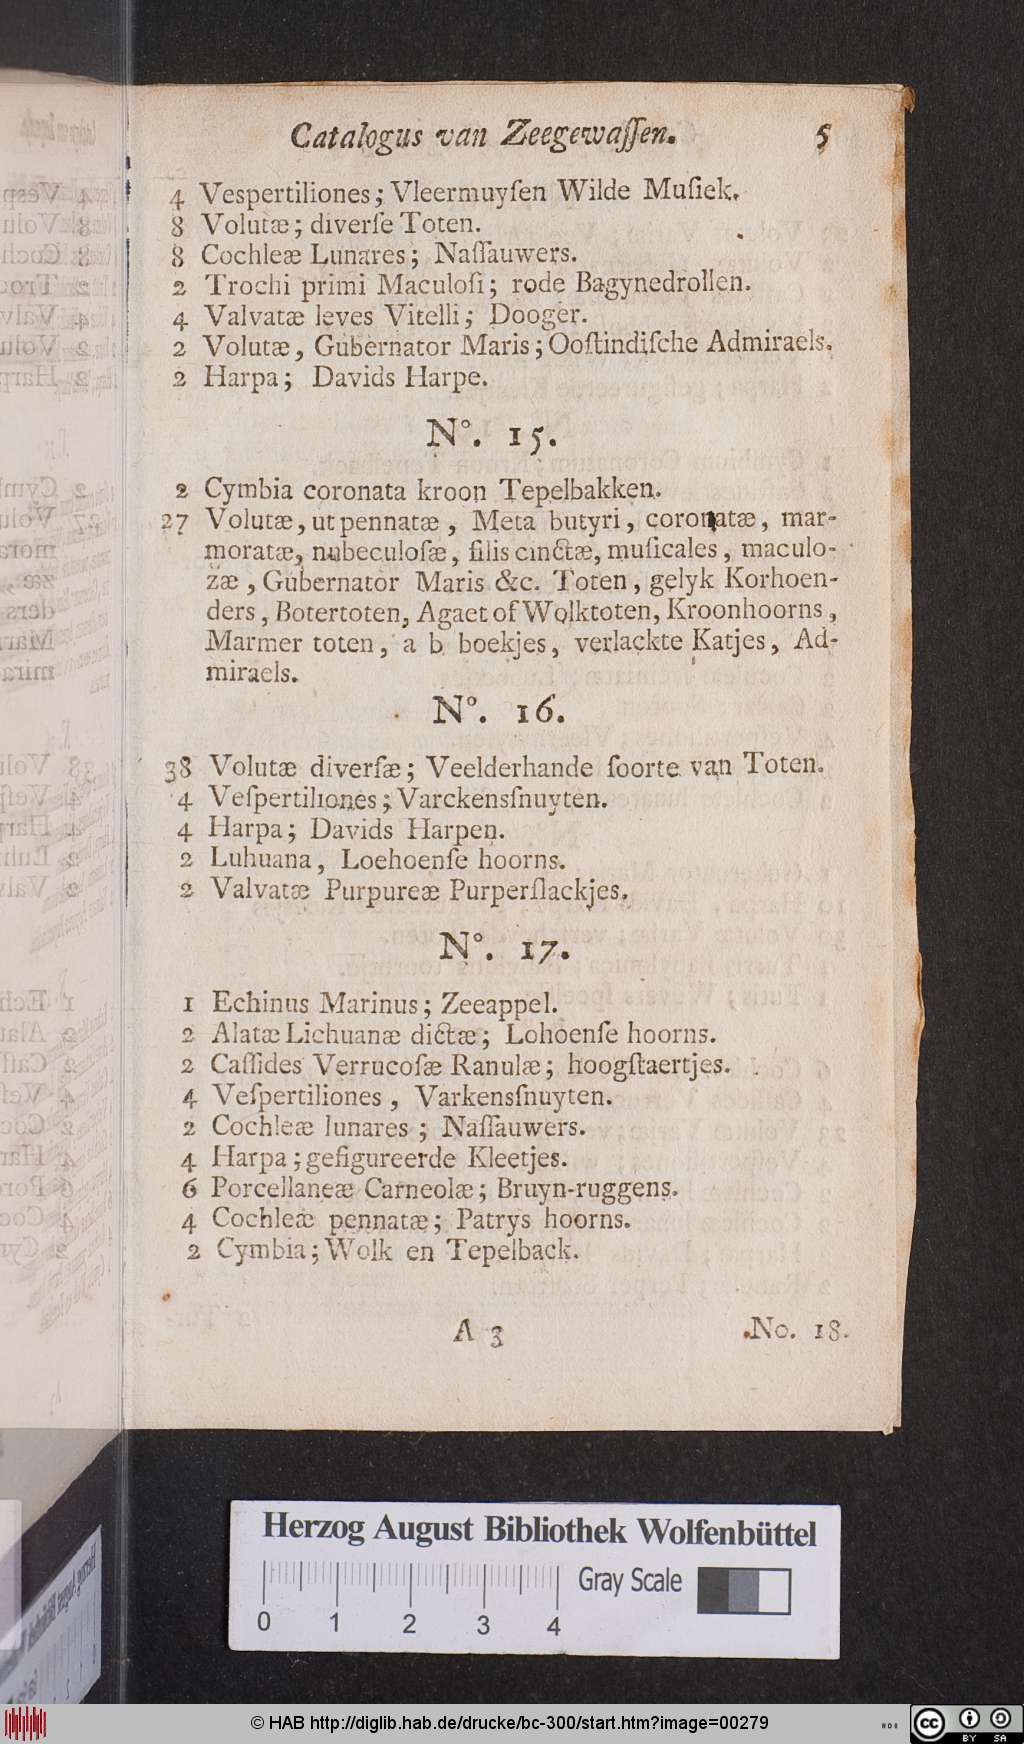 Catalogus van Zeegewaſſen. 5
4 Vespertiliones; Vleermuyſen Wilde Muſiek.
8 Volutæ; diverſe Toten.
8 Cochleæ Lunares; Naſſauwers.
2 Trochi primi Maculoſi; rode Bagynedrollen.
4 Valvatæ leves Vitelli; Dooger.
2 Volutæ, Gubernator Maris; Ooſtindiſche Admiraels.
2 Harpa; Davids Harpe.
N°. 15.
2 Cymbia coronata kroon Tepelbakken.
27 Volutæ, ut pennatæ, Meta butyri, coronatæ, mar-
moratæ, nubeculoſæ, filis cinctæ, muſicales, maculo-
zæ, Gubernator Maris &c. Toten, gelyk Korhoen-
ders, Botertoten, Agaet of Wolktoten, Kroonhoorns,
Marmer toten, a b boekjes, verlackte Katjes, Ad-
miraels.
N°. 16.
38 Volutæ diverſæ; Veelderhande ſoorte van Toten.
4 Veſpertiliones; Varckensſnuyten.
4 Harpa; Davids Harpen.
2 Luhuana, Loehoenſe hoorns.
2 Valvatæ Purpureæ Purperſlackjes.
N°. 17.
1 Echinus Marinus; Zeeappel.
2 Alatæ Lichuanæ dictæ; Lohoenſe hoorns.
2 Caſſides Verrucoſæ Ranulæ; hoogſtaertjes.
4 Veſpertiliones, Varkensſnuyten.
2 Cochleæ lunares; Naſſauwers.
4 Harpa; gefigureerde Kleetjes.
6 Porcellaneæ Carneolæ; Bruyn-ruggens.
4 Cochleæ pennatæ; Patrys hoorns.
2 Cymbia; Wolk en Tepelback.
A 3 No. 18.
Herzog August Bibliothek Wolfenbüttel
Gray Scale
0 1 2 3 4
© HAB http://diglib.hab.de/drucke/bc-300/start.htm?image=00279
cc BY SA